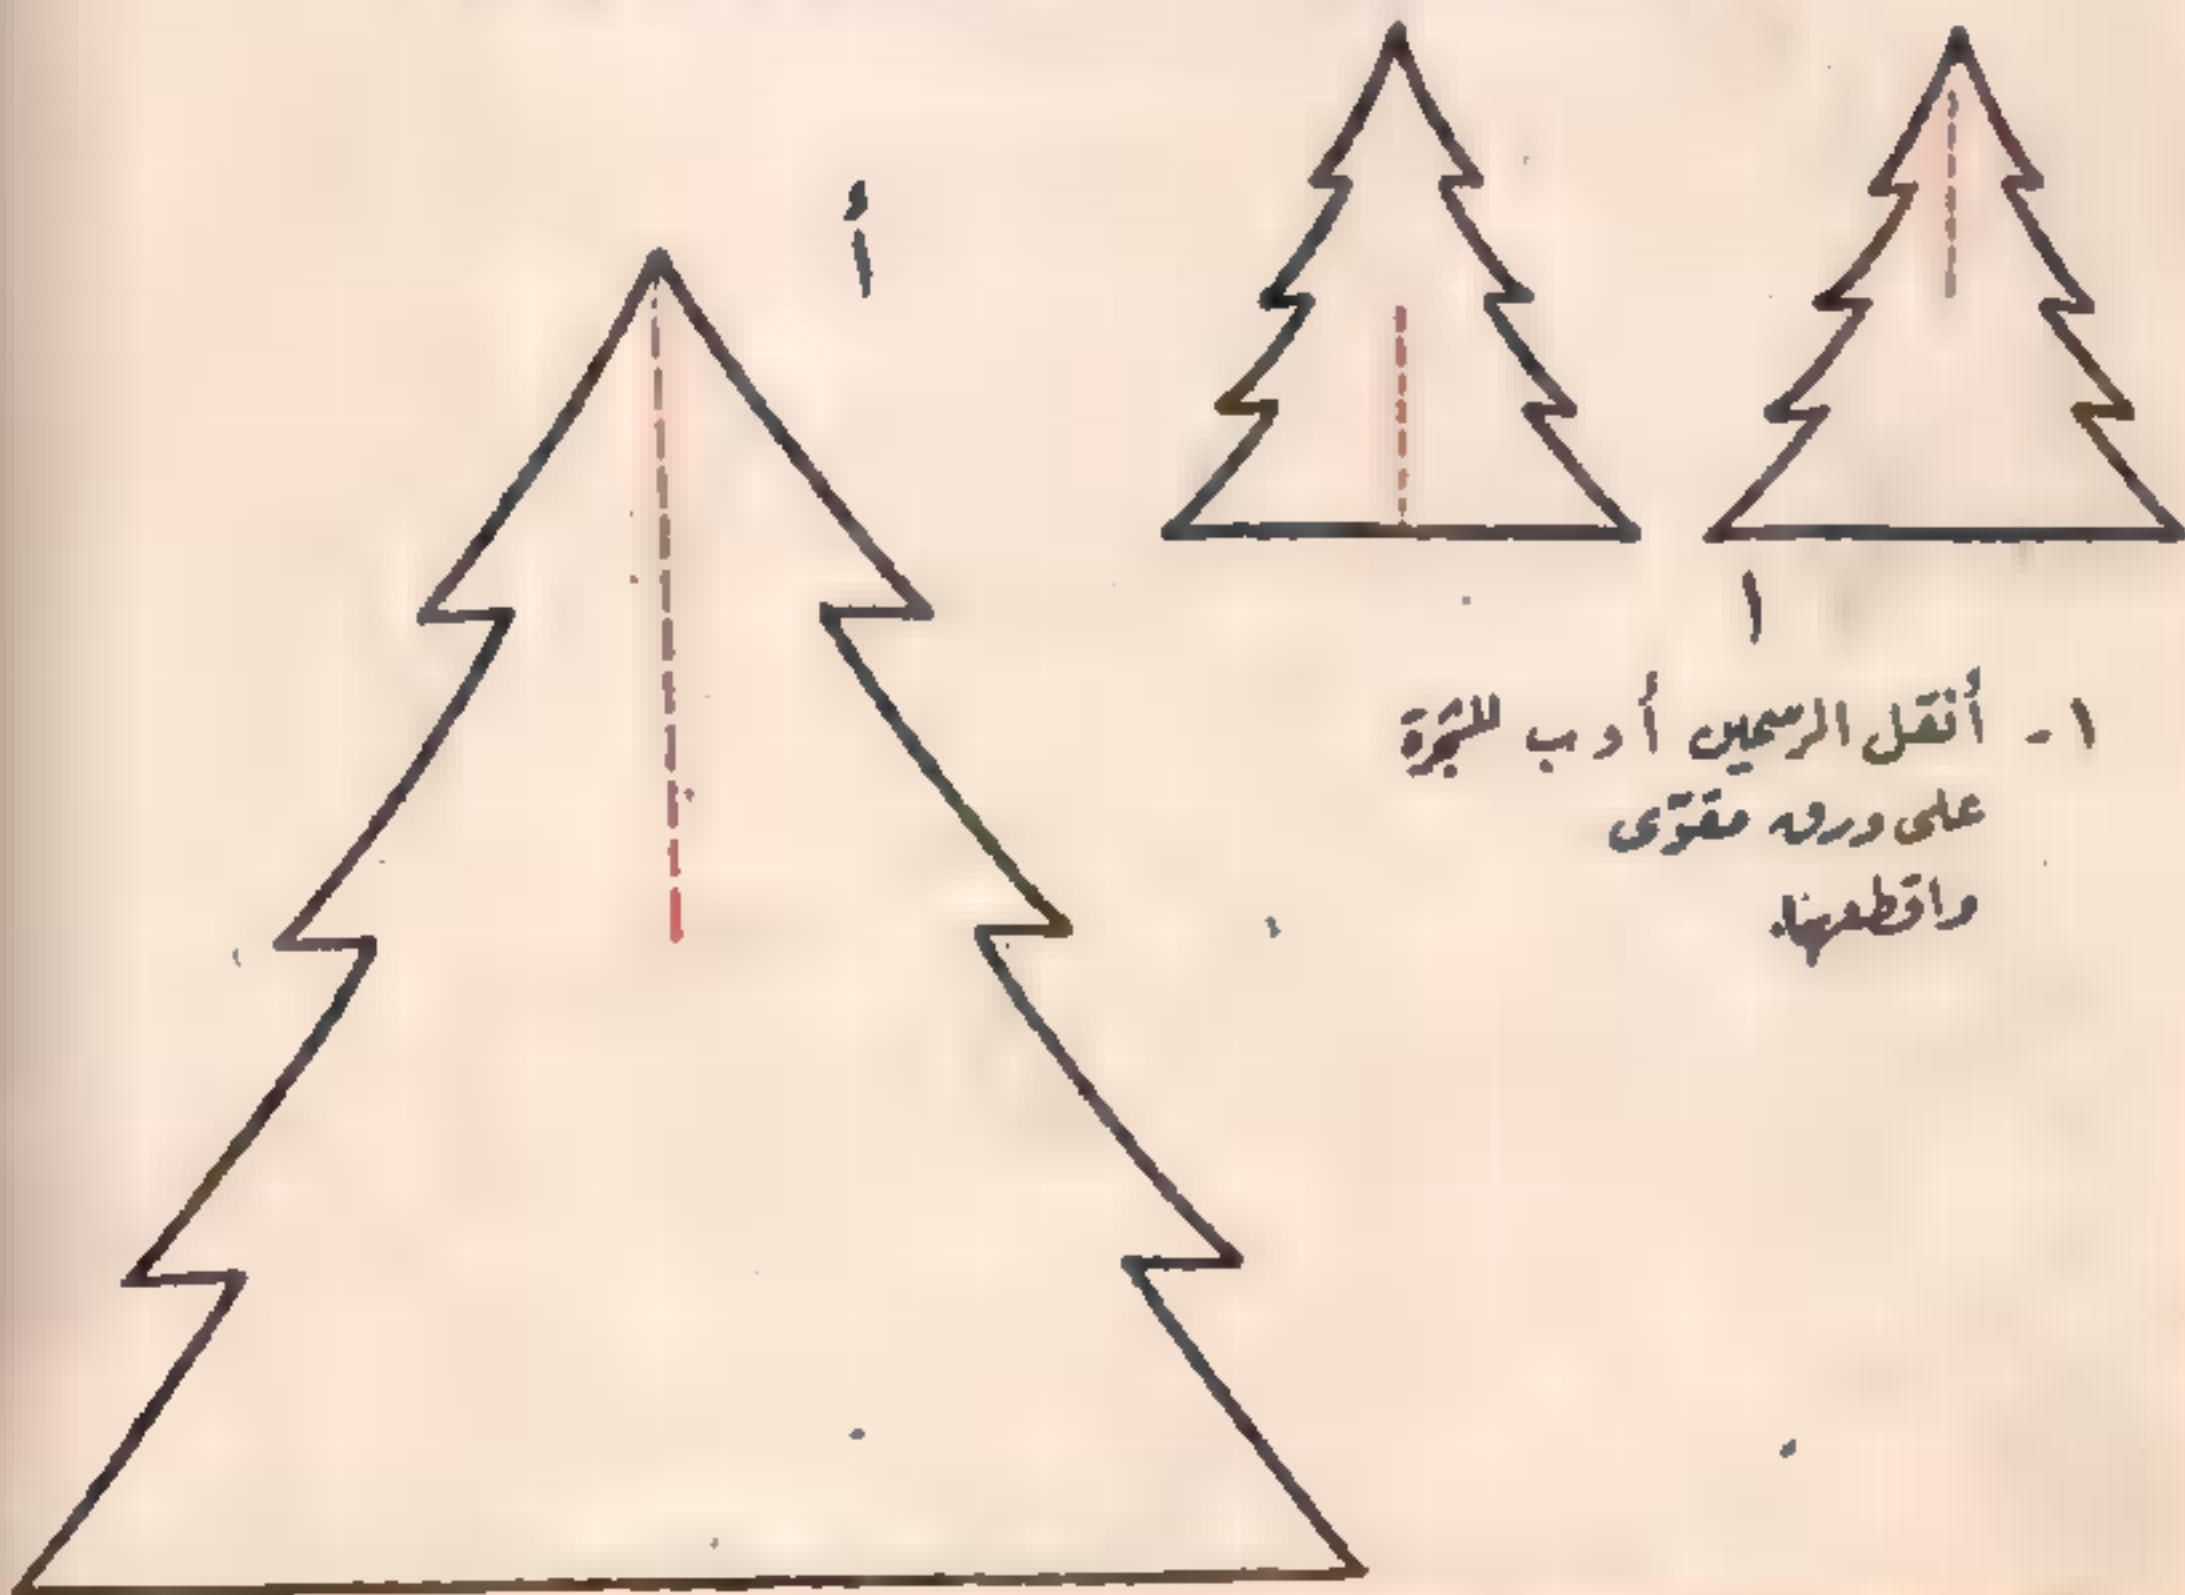 أ
١
١- أنقل الرسمين أ و ب للشجرة
على ورق مقوّى
واقطعهما.